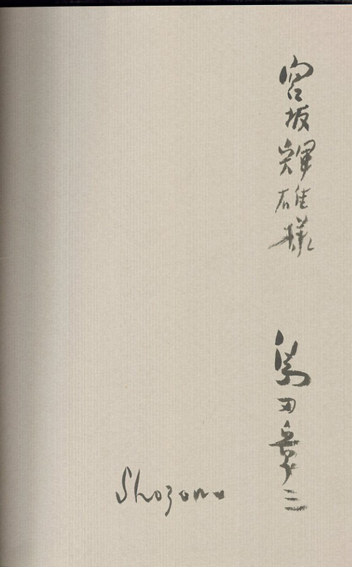 宮坂輝雄様
島田章三
Shozo